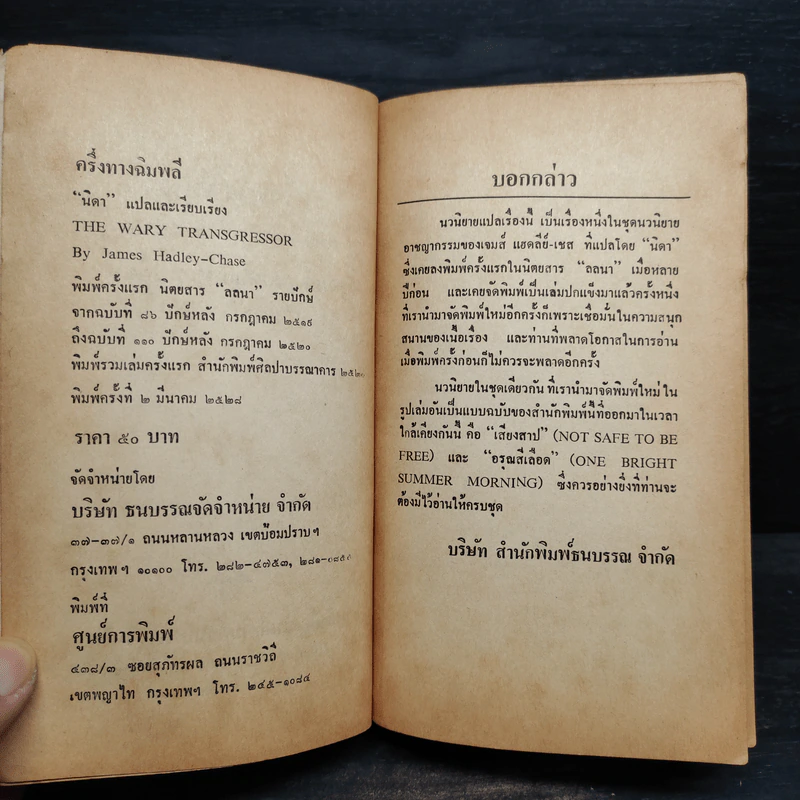 ครึ่งทางฉิมพลี
“นิดา” แปลและเรียบเรียง
THE WARY TRANSGRESSOR
By James Hadley-Chase
พิมพ์ครั้งแรก นิตยสาร “ลลนา” รายปักษ์
จากฉบับที่ ๘๖ ปักษ์หลัง กรกฎาคม ๒๕๑๙
ถึงฉบับที่ ๑๑๐ ปักษ์หลัง กรกฎาคม ๒๕๒๐
พิมพ์รวมเล่มครั้งแรก สำนักพิมพ์ศิลปาบรรณาคาร
พิมพ์ครั้งที่ ๒ มีนาคม ๒๕๒๘
ราคา ๕๐ บาท
จัดจำหน่ายโดย
บริษัท ธนบรรณจัดจำหน่าย จำกัด
๓๗-๓๗/๑ ถนนหลานหลวง เขตป้อมปราบฯ
กรุงเทพฯ ๑๐๑๐๐ โทร. ๒๘๒-๔๗๕๓,
พิมพ์ที่
ศูนย์การพิมพ์
๔๓๘/๓ ซอยสุภัทรผล ถนนราชวิถี
เขตพญาไท กรุงเทพฯ โทร. ๒๔๕-๑๐๘๔
บอกกล่าว
นวนิยายแปลเรื่องนี้ เป็นเรื่องหนึ่งในชุดนวนิยาย
อาชญากรรมของเจมส์ แฮดลีย์-เชส ที่แปลโดย “นิดา”
ซึ่งเคยลงพิมพ์ครั้งแรกในนิตยสาร “ลลนา” เมื่อหลาย
ปีก่อน และเคยจัดพิมพ์เป็นเล่มปกแข็งมาแล้วครั้งหนึ่ง
ที่เรานำมาจัดพิมพ์ใหม่อีกครั้งก็เพราะเชื่อมั่นในความสนุก
สนานของเนื้อเรื่อง และท่านที่พลาดโอกาสในการอ่าน
เมื่อพิมพ์ครั้งก่อนก็ไม่ควรจะพลาดอีกครั้ง
นวนิยายในชุดเดียวกัน ที่เรานำมาจัดพิมพ์ใหม่ ใน
รูปเล่มอันเป็นแบบฉบับของสำนักพิมพ์นี้ที่ออกมาในเวลา
ใกล้เคียงกันนี้ คือ “เสียงสาป” (NOT SAFE TO BE
FREE) และ “อรุณสีเลือด” (ONE BRIGHT
SUMMER MORNING) ซึ่งควรอย่างยิ่งที่ท่านจะ
ต้องมีไว้อ่านให้ครบชุด
บริษัท สำนักพิมพ์ธนบรรณ จำกัด